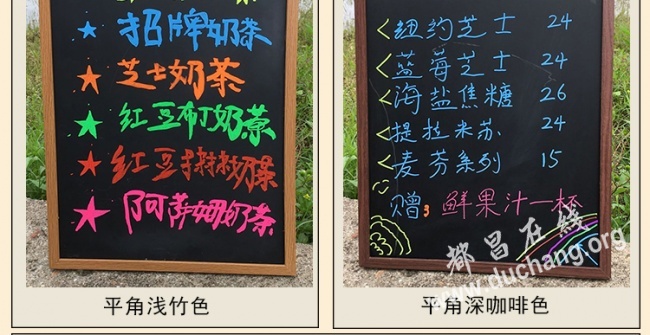 招牌奶茶
芝士奶茶
红豆布丁奶茶
红豆抹抹奶茶
阿萨姆奶茶
平角浅竹色
纽约芝士 24
蓝莓芝士 24
海盐焦糖 26
提拉米苏 24
麦芬系列 15
赠 鲜果汁一杯
都昌在线
www.duchang.org
平角深咖啡色